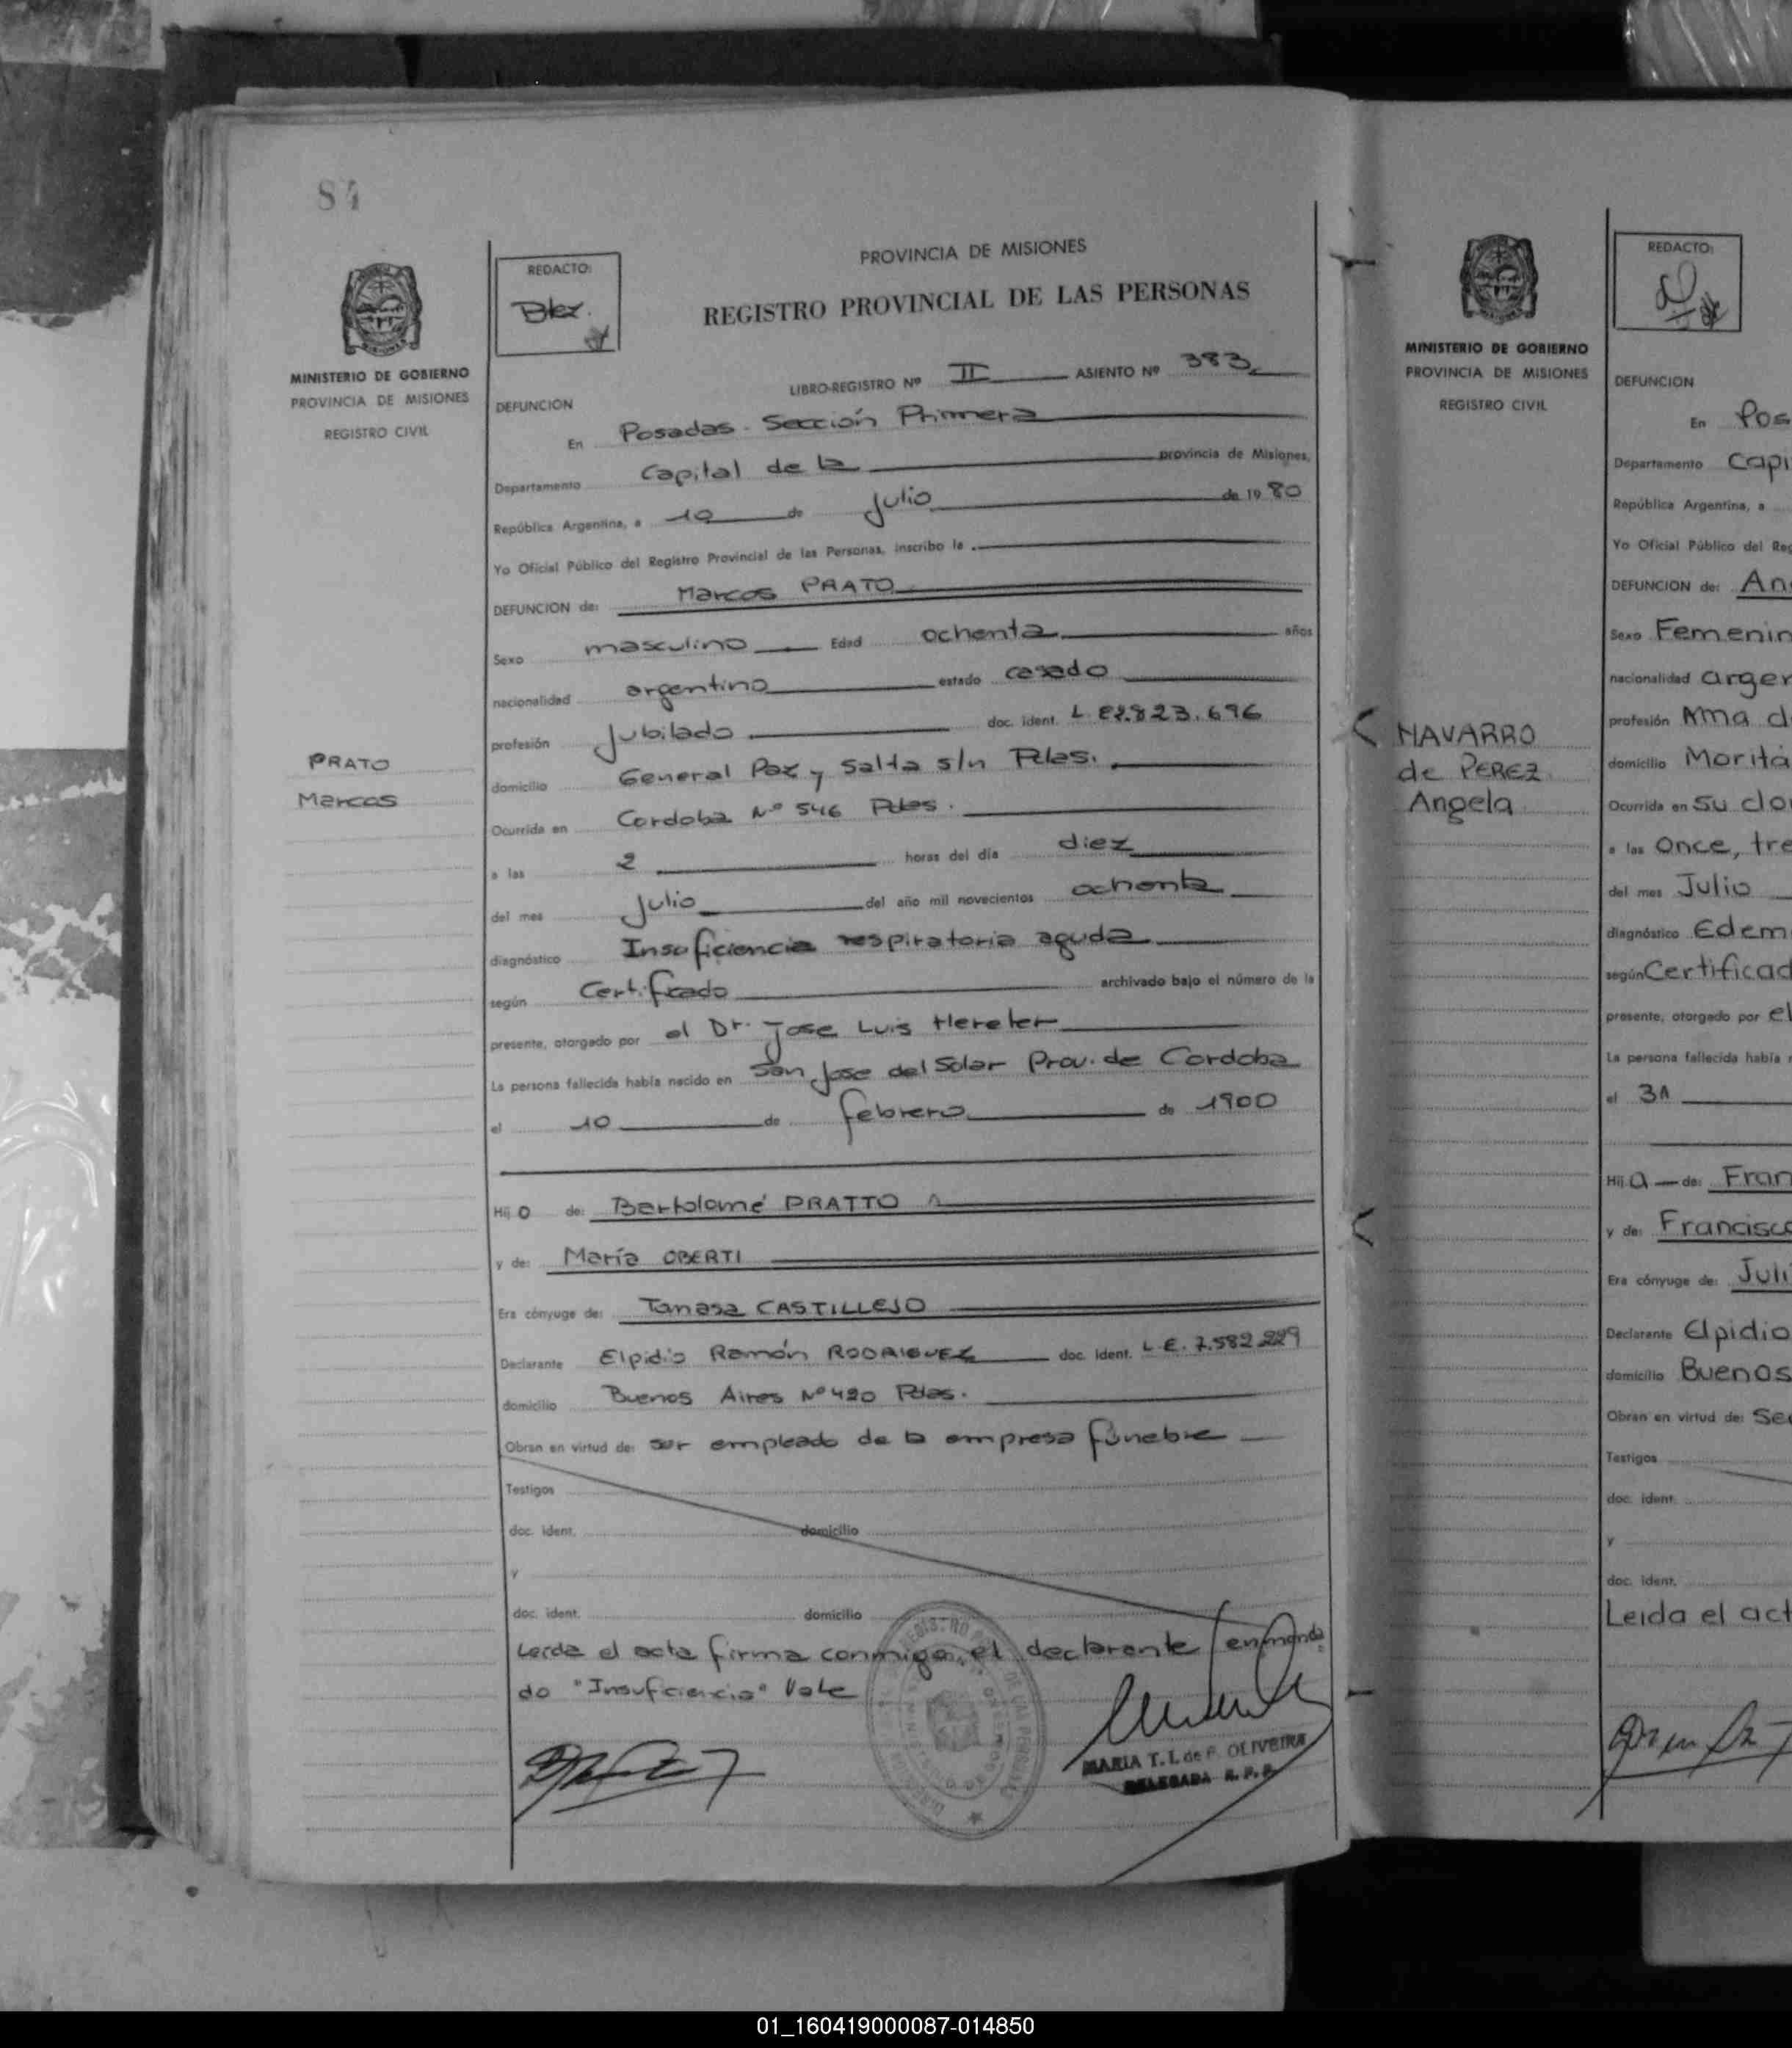 84
MINISTERIO DE GOBIERNO
PROVINCIA DE MISIONES
REGISTRO CIVIL
PRATO
Marcos
REDACTO:
PROVINCIA DE MISIONES
REGISTRO PROVINCIAL DE LAS PERSONAS
LIBRO-REGISTRO Nº II ASIENTO Nº 383
DEFUNCION
En Posadas - Sección Primera
Departamento Capital de la provincia de Misiones,
República Argentina, a 10 de Julio de 19 80
Yo Oficial Público del Registro Provincial de las Personas, inscribo la
DEFUNCION de: Marcos PRATO
Sexo masculino Edad ochenta años
nacionalidad argentino estado casado
profesión Jubilado doc. ident. L.E2.823.696
domicilio General Paz y Salta s/n Pdas.
Ocurrida en Cordoba Nº 546 Pdas.
a las 2 horas del día diez
del mes Julio del año mil novecientos ochenta
diagnóstico Insuficiencia respiratoria aguda
según Certificado archivado bajo el número de la
presente, otorgado por el Dr. Jose Luis Hereter
La persona fallecida había nacido en San Jose del Solar Prov. de Cordoba
el 10 de febrero de 1900
Hij o de: Bartolomé PRATTO
y de: María OBERTI
Era cónyuge de: Tomasa CASTILLEJO
Declarante Elpidio Ramón RODRIGUEZ doc. Ident. L.E. 7.582.229
domicilio Buenos Aires Nº 420 Pdas.
Obran en virtud de: ser empleado de la empresa fúnebre
Testigos
doc. ident. domicilio
y
doc. ident. domicilio
Leída el acta firma conmigo, el declarante / enmenda
do "Insuficiencia" Vale
MARIA T. L. de F. OLIVEIRA
DELEGADA R. P. P.
MINISTERIO DE GOBIERNO
PROVINCIA DE MISIONES
REGISTRO CIVIL
NAVARRO
de PEREZ
Angela
REDACTO:
DEFUNCION
En Pos
Departamento Capi
República Argentina, a
Yo Oficial Público del Reg
DEFUNCION de: An
Sexo Femenin
nacionalidad argen
profesión Ama d
domicilio Moritá
Ocurrida en su do
a las Once, tre
del mes Julio
diagnóstico Edem
según Certificad
presente, otorgado por el
La persona fallecida había n
el 31
Hij a de: Fran
y de: Francisc
Era cónyuge de: Juli
Declarante Elpidio
domicilio Buenos
Obran en virtud de: Se
Testigos
doc. ident.
y
doc. ident.
Leida el act
01_160419000087-014850